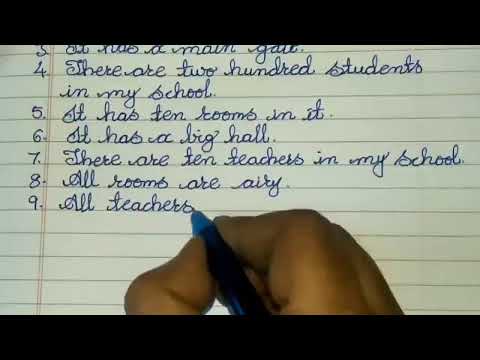 3. It has a main gate.
4. There are two hundred students
in my school.
5. It has ten rooms in it.
6. It has a big hall.
7. There are ten teachers in my school.
8. All rooms are airy.
9. All teachers